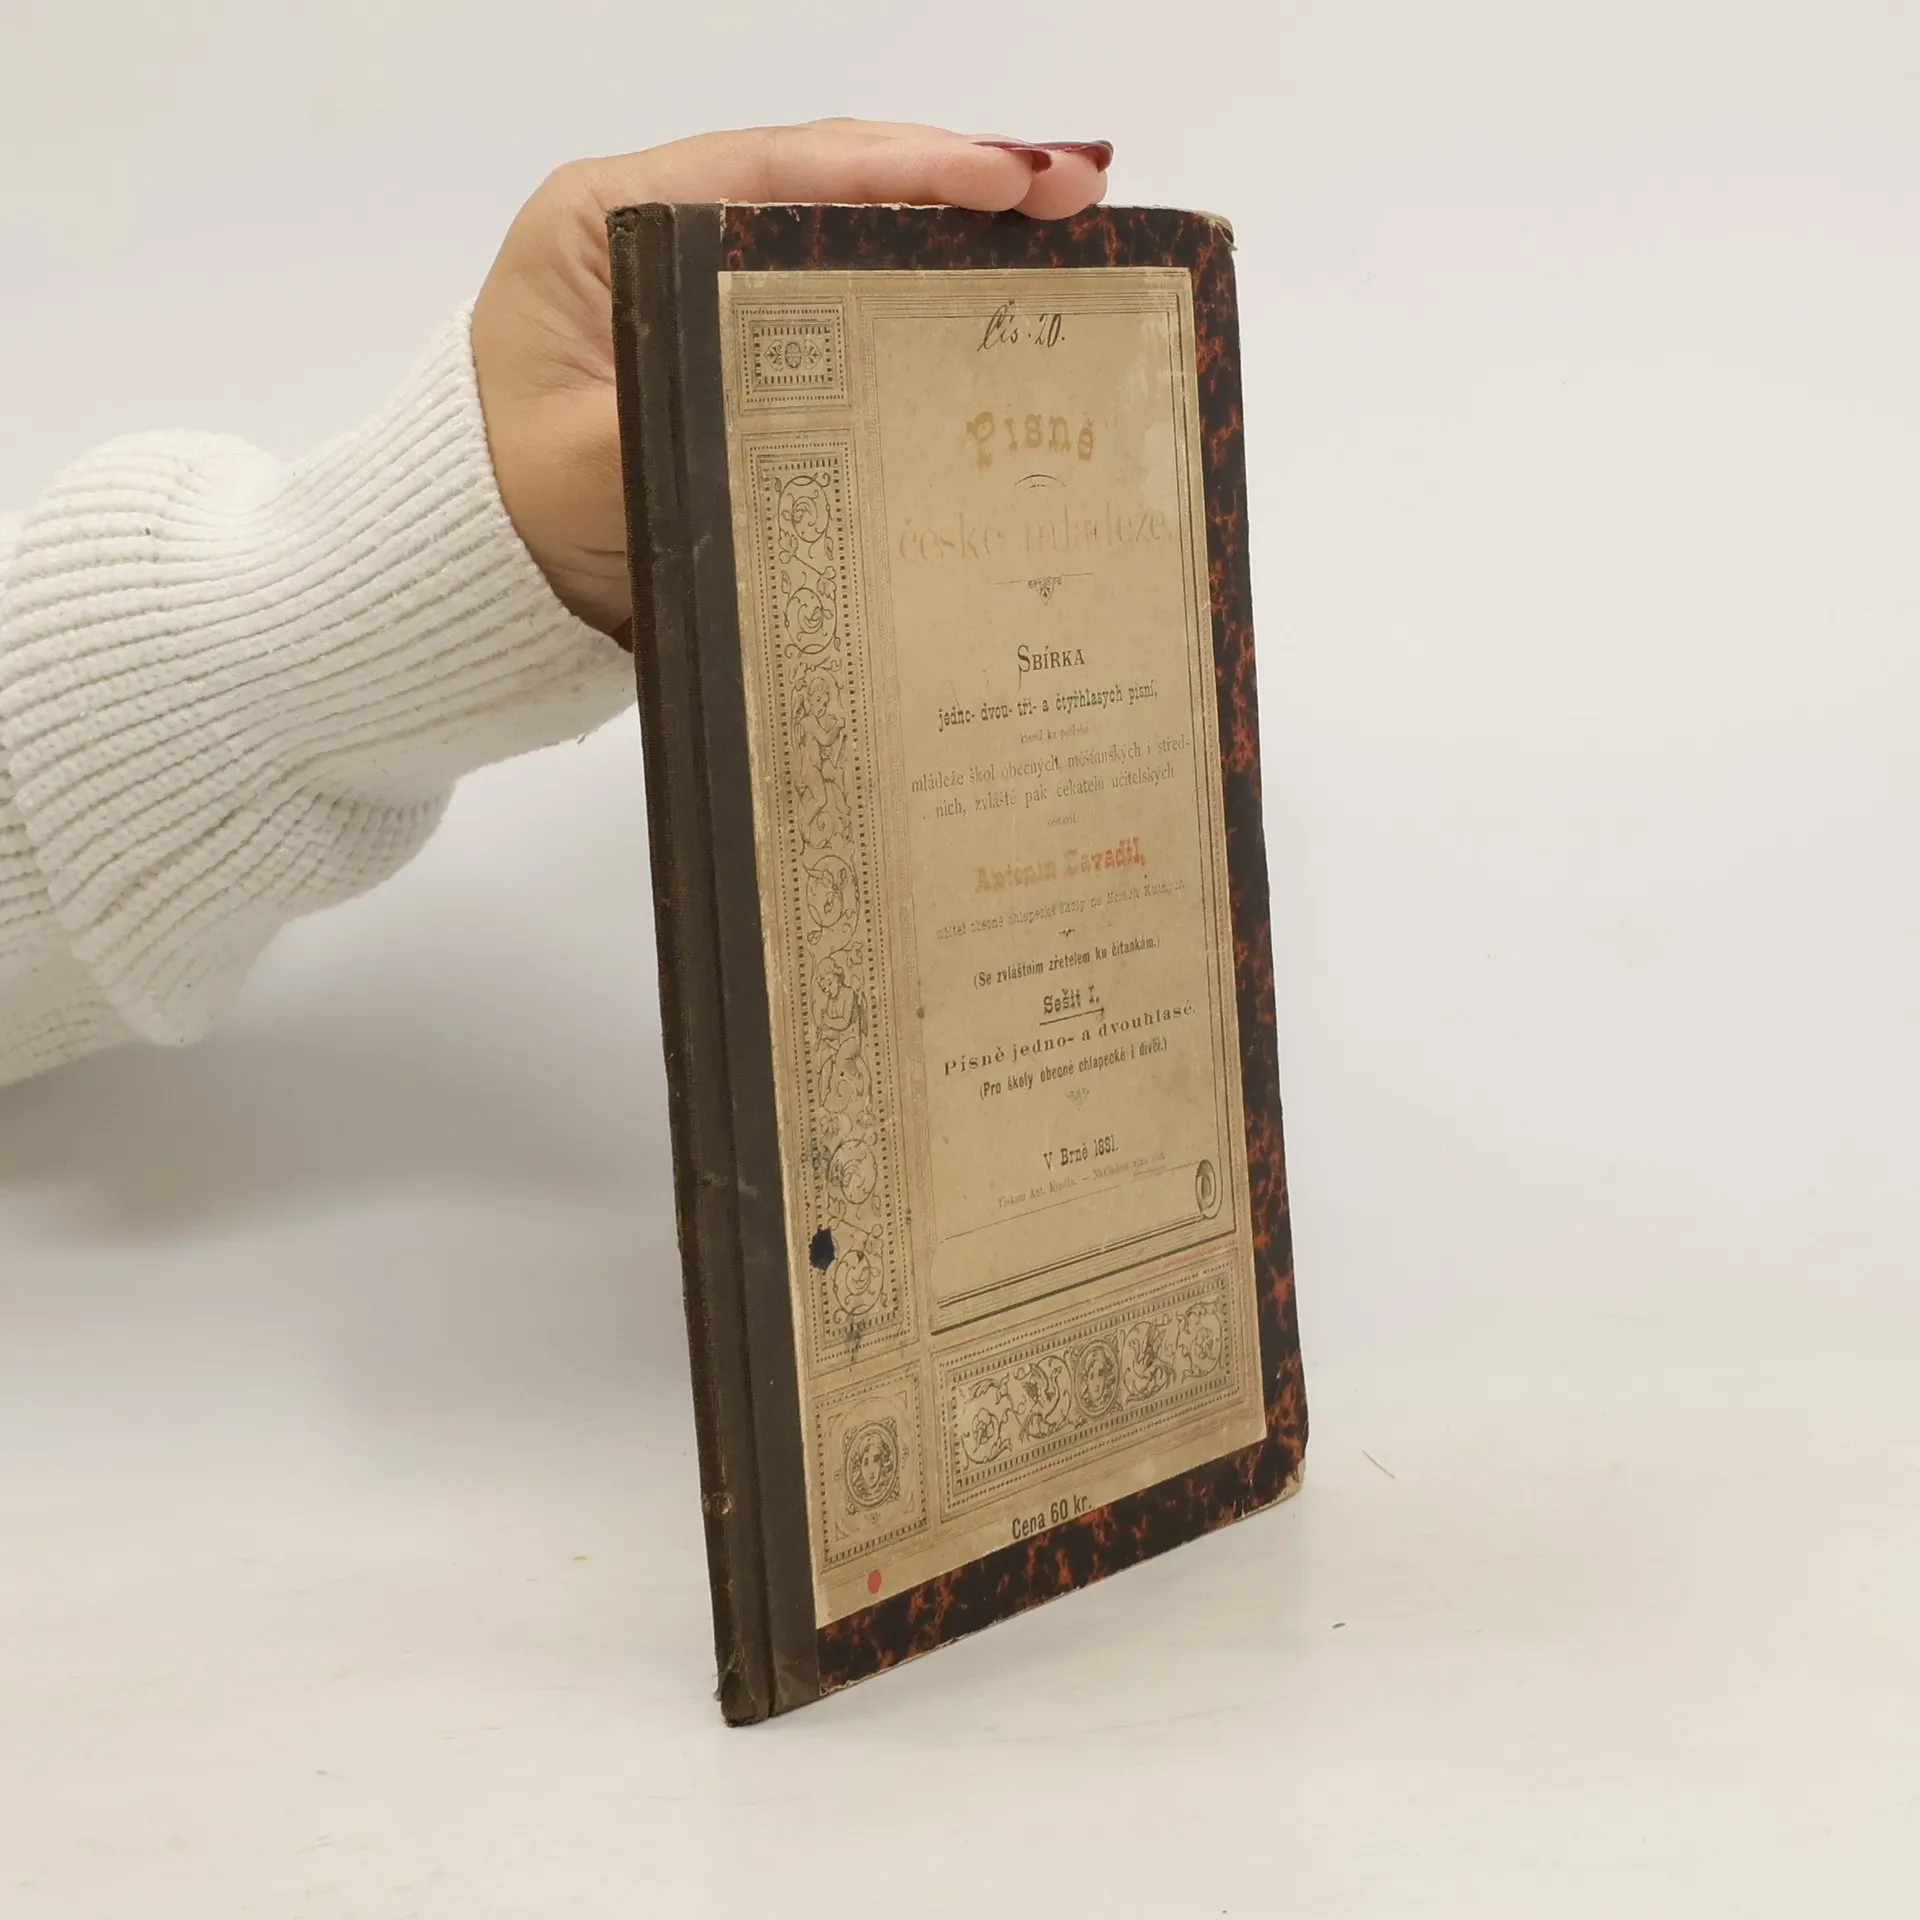 Čís. 20.
Písně
české mládeže.
SBÍRKA
jedno- dvou- tří- a čtyřhlasých písní,
kteréž ku potřebě
mládeže škol obecných, měšťanských i střed-
ních, zvláště pak čekatelů učitelských
sestavil
Antonín Zavadil,
učitel obecné chlapecké školy na Horách
(Se zvláštním zřetelem ku čítankám.)
Sešit I.
Písně jedno- a dvouhlasé.
(Pro školy obecné chlapecké i dívčí.)
V Brně 1881.
Tiskem Ant. – Nákladem
Cena 60 kr.